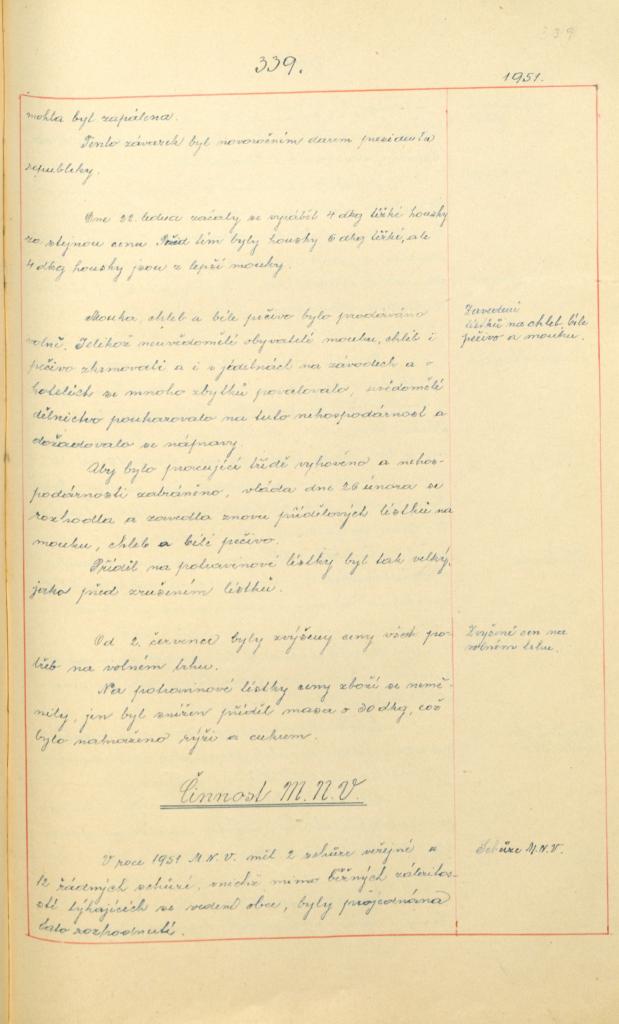 339
339.
1951.
mohla byl zapálena.
Tento závazek byl novoročním darem presidenta
republiky.
Dne 22. ledna začaly se vyrábět 4 dkg těžké housky
za stejnou cenu. Před tím byly housky 6 dkg těžké, ale
4 dkg housky jsou z lepší mouky.
Mouka, chleb a bílé pečivo bylo prodáváno
volně. Jelikož neuvědomělí obyvatelé mouku, chléb i
pečivo zkrmovali a i v jídelnách na závodech a
hotelích se mnoho zbytků povalovalo, uvědomělé
dělnictvo poukazovalo na tuto nehospodárnost a
dožadovalo se nápravy.
Zavedení
lístků na chleb, bílé
pečivo a mouku.
Aby bylo pracující třídě vyhověno a nehos-
podárnosti zabráněno, vláda dne 26 února se
rozhodla a zavedla znovu přídělových lístků na
mouku, chleb a bílé pečivo.
Příděl na potravinové lístky byl tak velký,
jako před zrušením lístků.
Od 2. července byly zvýšeny ceny všech po-
třeb na volném trhu.
Zvýšení cen na
volném trhu.
Na potravinové lístky ceny zboží se nemě-
nily, jen byl snížen příděl masa o 30 dkg, což
bylo nahraženo rýží a cukrem.
Činnost M.N.V.
V roce 1951 M.N.V. měl 2 schůze veřejné a
12 řádných schůzí, v nichž mimo běžných záležitos-
tí týkajících se vedení obce, byly projednána
tato rozhodnutí.
Schůze M.N.V.